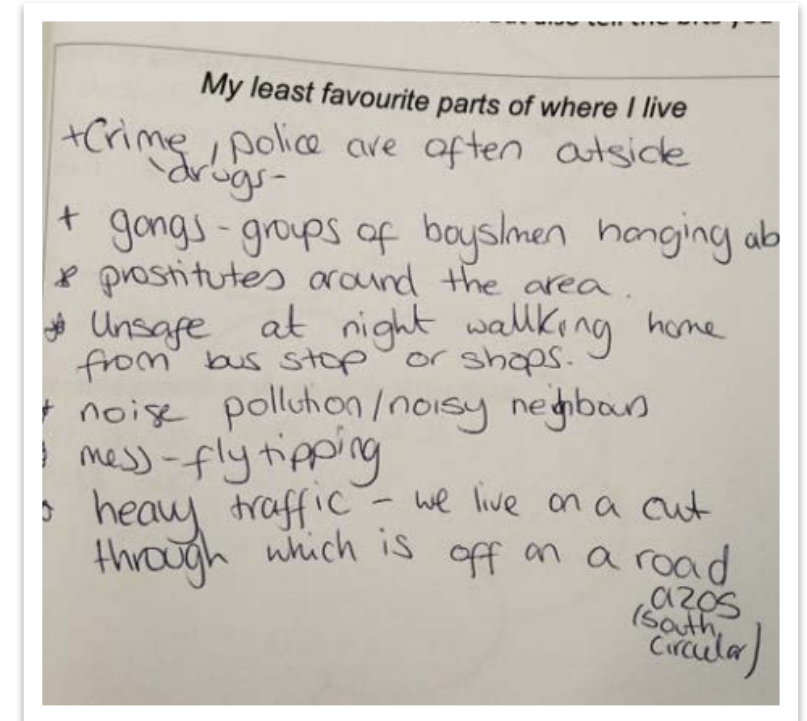 My least favourite parts of where I live
+ Crime, police are often outside
drugs-
+ gangs - groups of boys/men hanging ab
* prostitutes around the area.
* Unsafe at night wallking home
from bus stop or shops.
+ noise pollution/noisy neighbours
mess - fly tipping
heavy traffic - we live on a cut
through which is off an a road
a205
(south
circular)